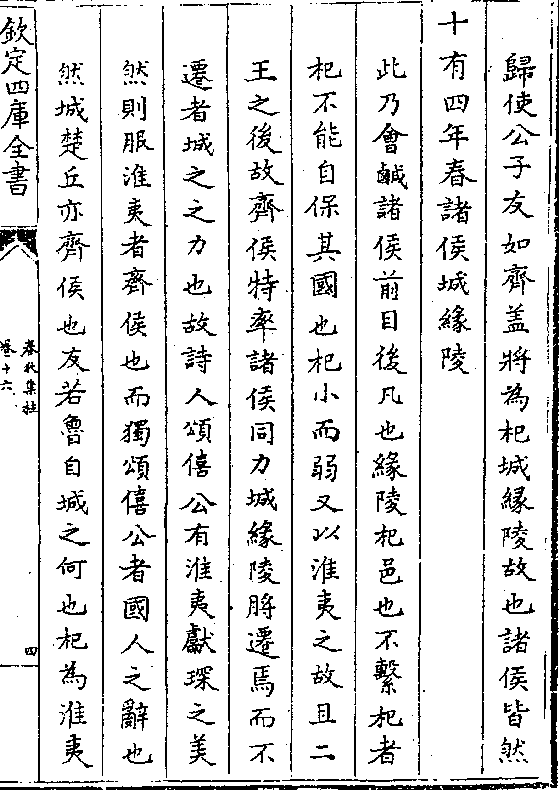 歸使公子友如齊盖將為杞城縁陵故也諸侯皆然
十有四年春諸侯城緣陵
此乃會鹹諸侯前目後凡也緣陵杞邑也不繫杞者
杞不能自保其國也杞小而弱又以淮夷之故且二
王之後故齊侯特率諸侯同力城緣陵將遷焉而不
遷者城之之力也故詩人頌僖公有淮夷獻琛之美
然則服淮夷者齊侯也而獨頌僖公者國人之辭也
然城楚丘亦齊侯也友若魯自城之何也杞為淮夷
欽定四庫全書
春秋集註
卷十六
四